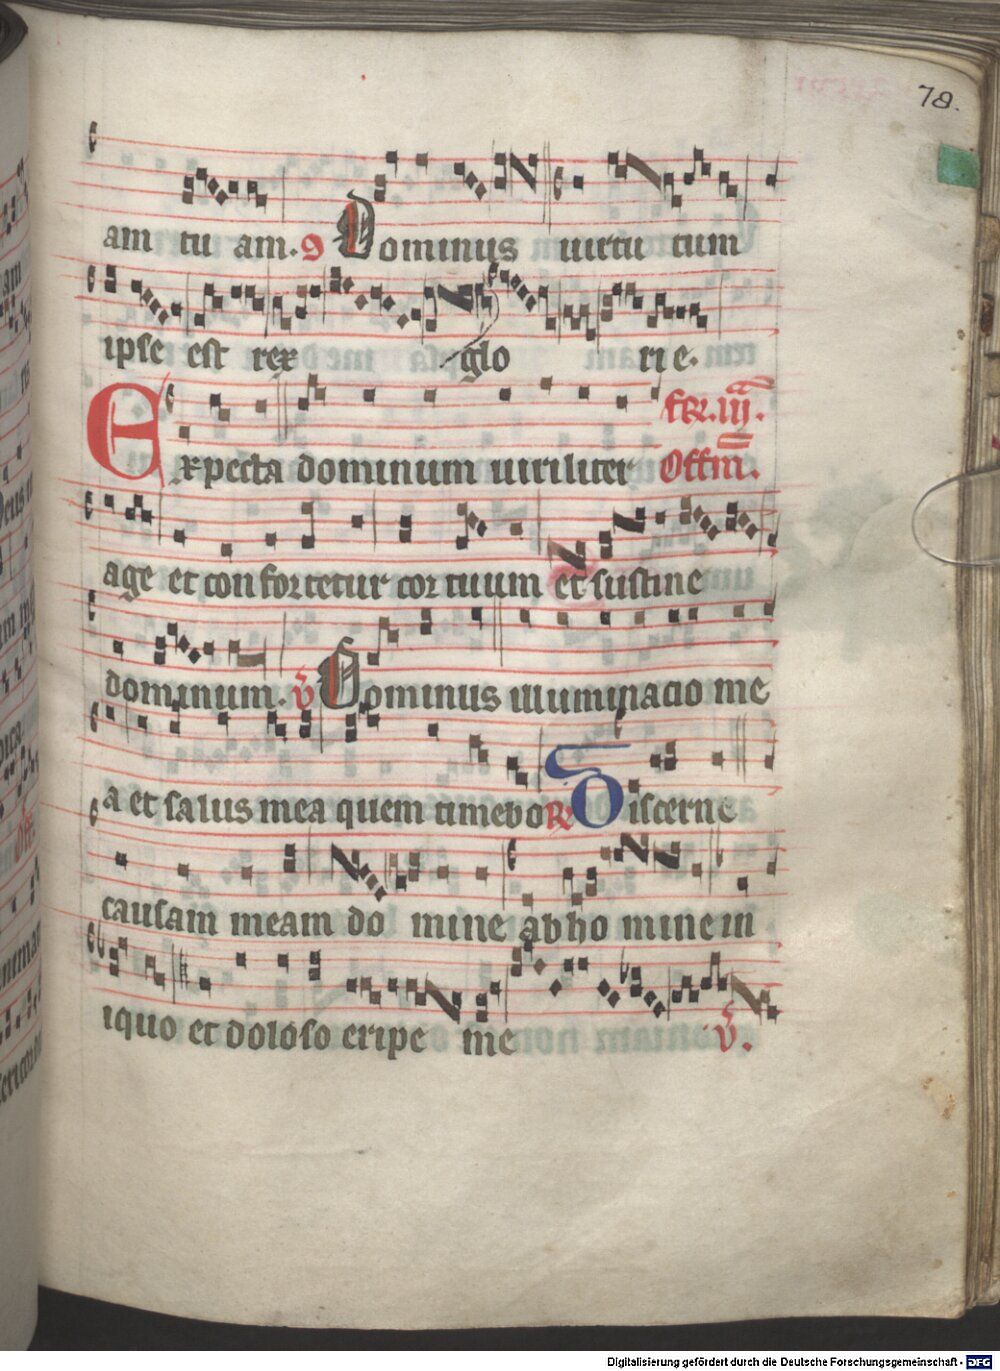 78.
am tu am. 9 Dominus uirtu tum
ipse est rex glo rie.
fer. iij.
Expecta dominum uiriliter Offm.
age et confortetur cor tuum et sustine
dominum. v Dominus illuminacio me
a et salus mea quem timebo R Discerne
causam meam do mine ab ho mine in
iquo et doloso eripe me v.
Digitalisierung gefördert durch die Deutsche Forschungsgemeinschaft - DFG